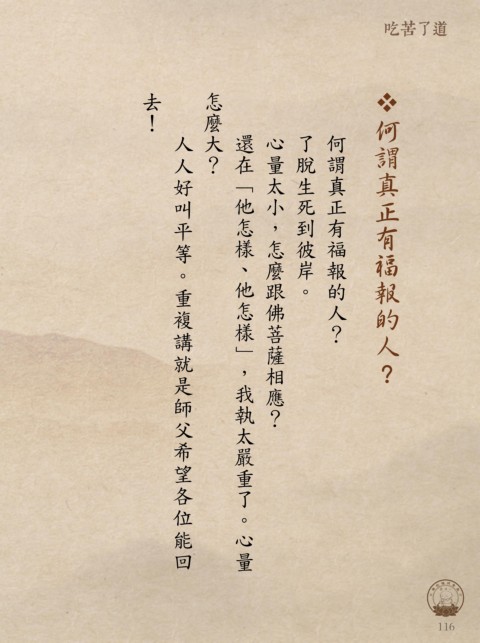 吃苦了道
❖何謂真正有福報的人？
何謂真正有福報的人？
了脫生死到彼岸。
心量太小，怎麼跟佛菩薩相應？
還在「他怎樣、他怎樣」，我執太嚴重了。心量
怎麼大？
人人好叫平等。重複講就是師父希望各位能回
去！
116